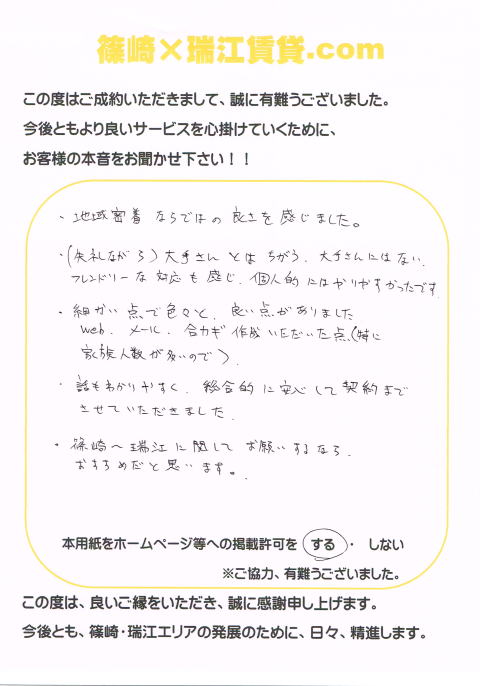 篠崎×瑞江賃貸.com
この度はご成約いただきまして、誠に有難うございました。
今後ともより良いサービスを心掛けていくために、
お客様の本音をお聞かせ下さい！！
・地域密着ならではの良さを感じました。
・(失礼ながら)大手さんとはちがう、大手さんにはない、
フレンドリーな対応も感じ、個人的にはやりやすかったです
・細かい点で色々と、良い点がありました
web、メール、合カギ作成いただいた点(特に
家族人数が多いので)、
・話もわかりやすく、総合的に安心して契約まで
させていただきました。
・篠崎〜瑞江に関してお願いするなら、
おすすめだと思います。
本用紙をホームページ等への掲載許可を する ・ しない
※ご協力、有難うございました。
この度は、良いご縁をいただき、誠に感謝申し上げます。
今後とも、篠崎・瑞江エリアの発展のために、日々、精進します。